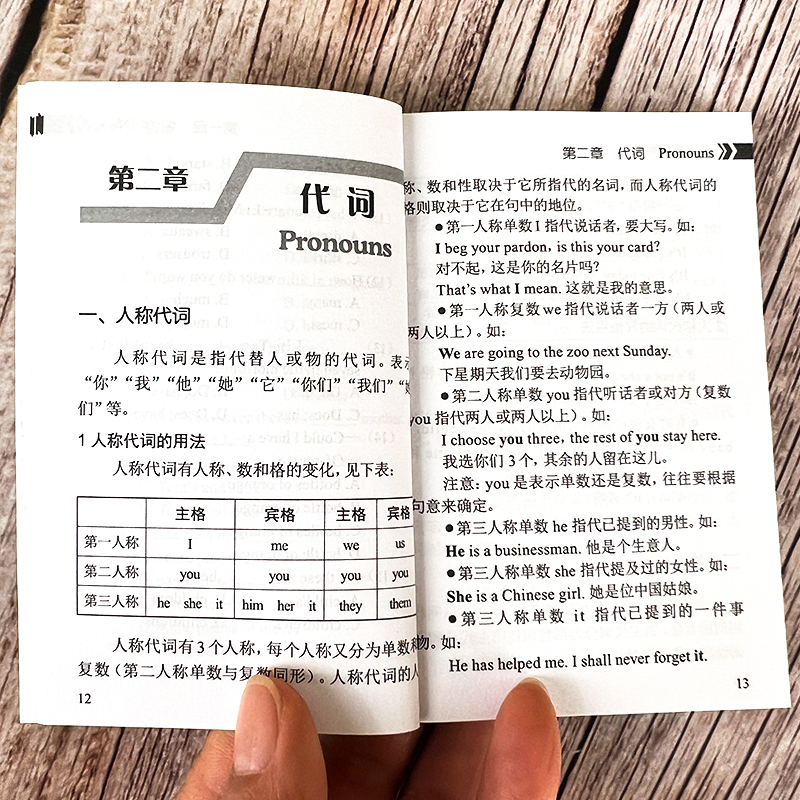 第二章
代词
Pronouns
一、人称代词
人称代词是指代替人或物的代词。表示
“你”“我”“他”“她”“它”“你们”“我们”“她
们”等。
1 人称代词的用法
人称代词有人称、数和格的变化，见下表：
主格 宾格 主格 宾格
第一人称 I me we us
第二人称 you you you you
第三人称 he she it him her it they them
人称代词有3个人称，每个人称又分为单数和
复数（第二人称单数与复数同形）。人称代词的人
12
第二章 代词 Pronouns
称、数和性取决于它所指代的名词，而人称代词的
格则取决于它在句中的地位。
●第一人称单数I指代说话者，要大写。如：
I beg your pardon, is this your card?
对不起，这是你的名片吗？
That's what I mean. 这就是我的意思。
●第一人称复数we指代说话者一方（两人或
两人以上）。如：
We are going to the zoo next Sunday.
下星期天我们要去动物园。
●第二人称单数you指代听话者或对方（复数
you指代两人或两人以上）。如：
I choose you three, the rest of you stay here.
我选你们3个，其余的人留在这儿。
注意：you是表示单数还是复数，往往要根据
句意来确定。
●第三人称单数he指代已提到的男性。如：
He is a businessman. 他是个生意人。
●第三人称单数she指代提及过的女性。如：
She is a Chinese girl. 她是位中国姑娘。
●第三人称单数 it 指代已提到的一件事
物。如：
He has helped me. I shall never forget it.
13